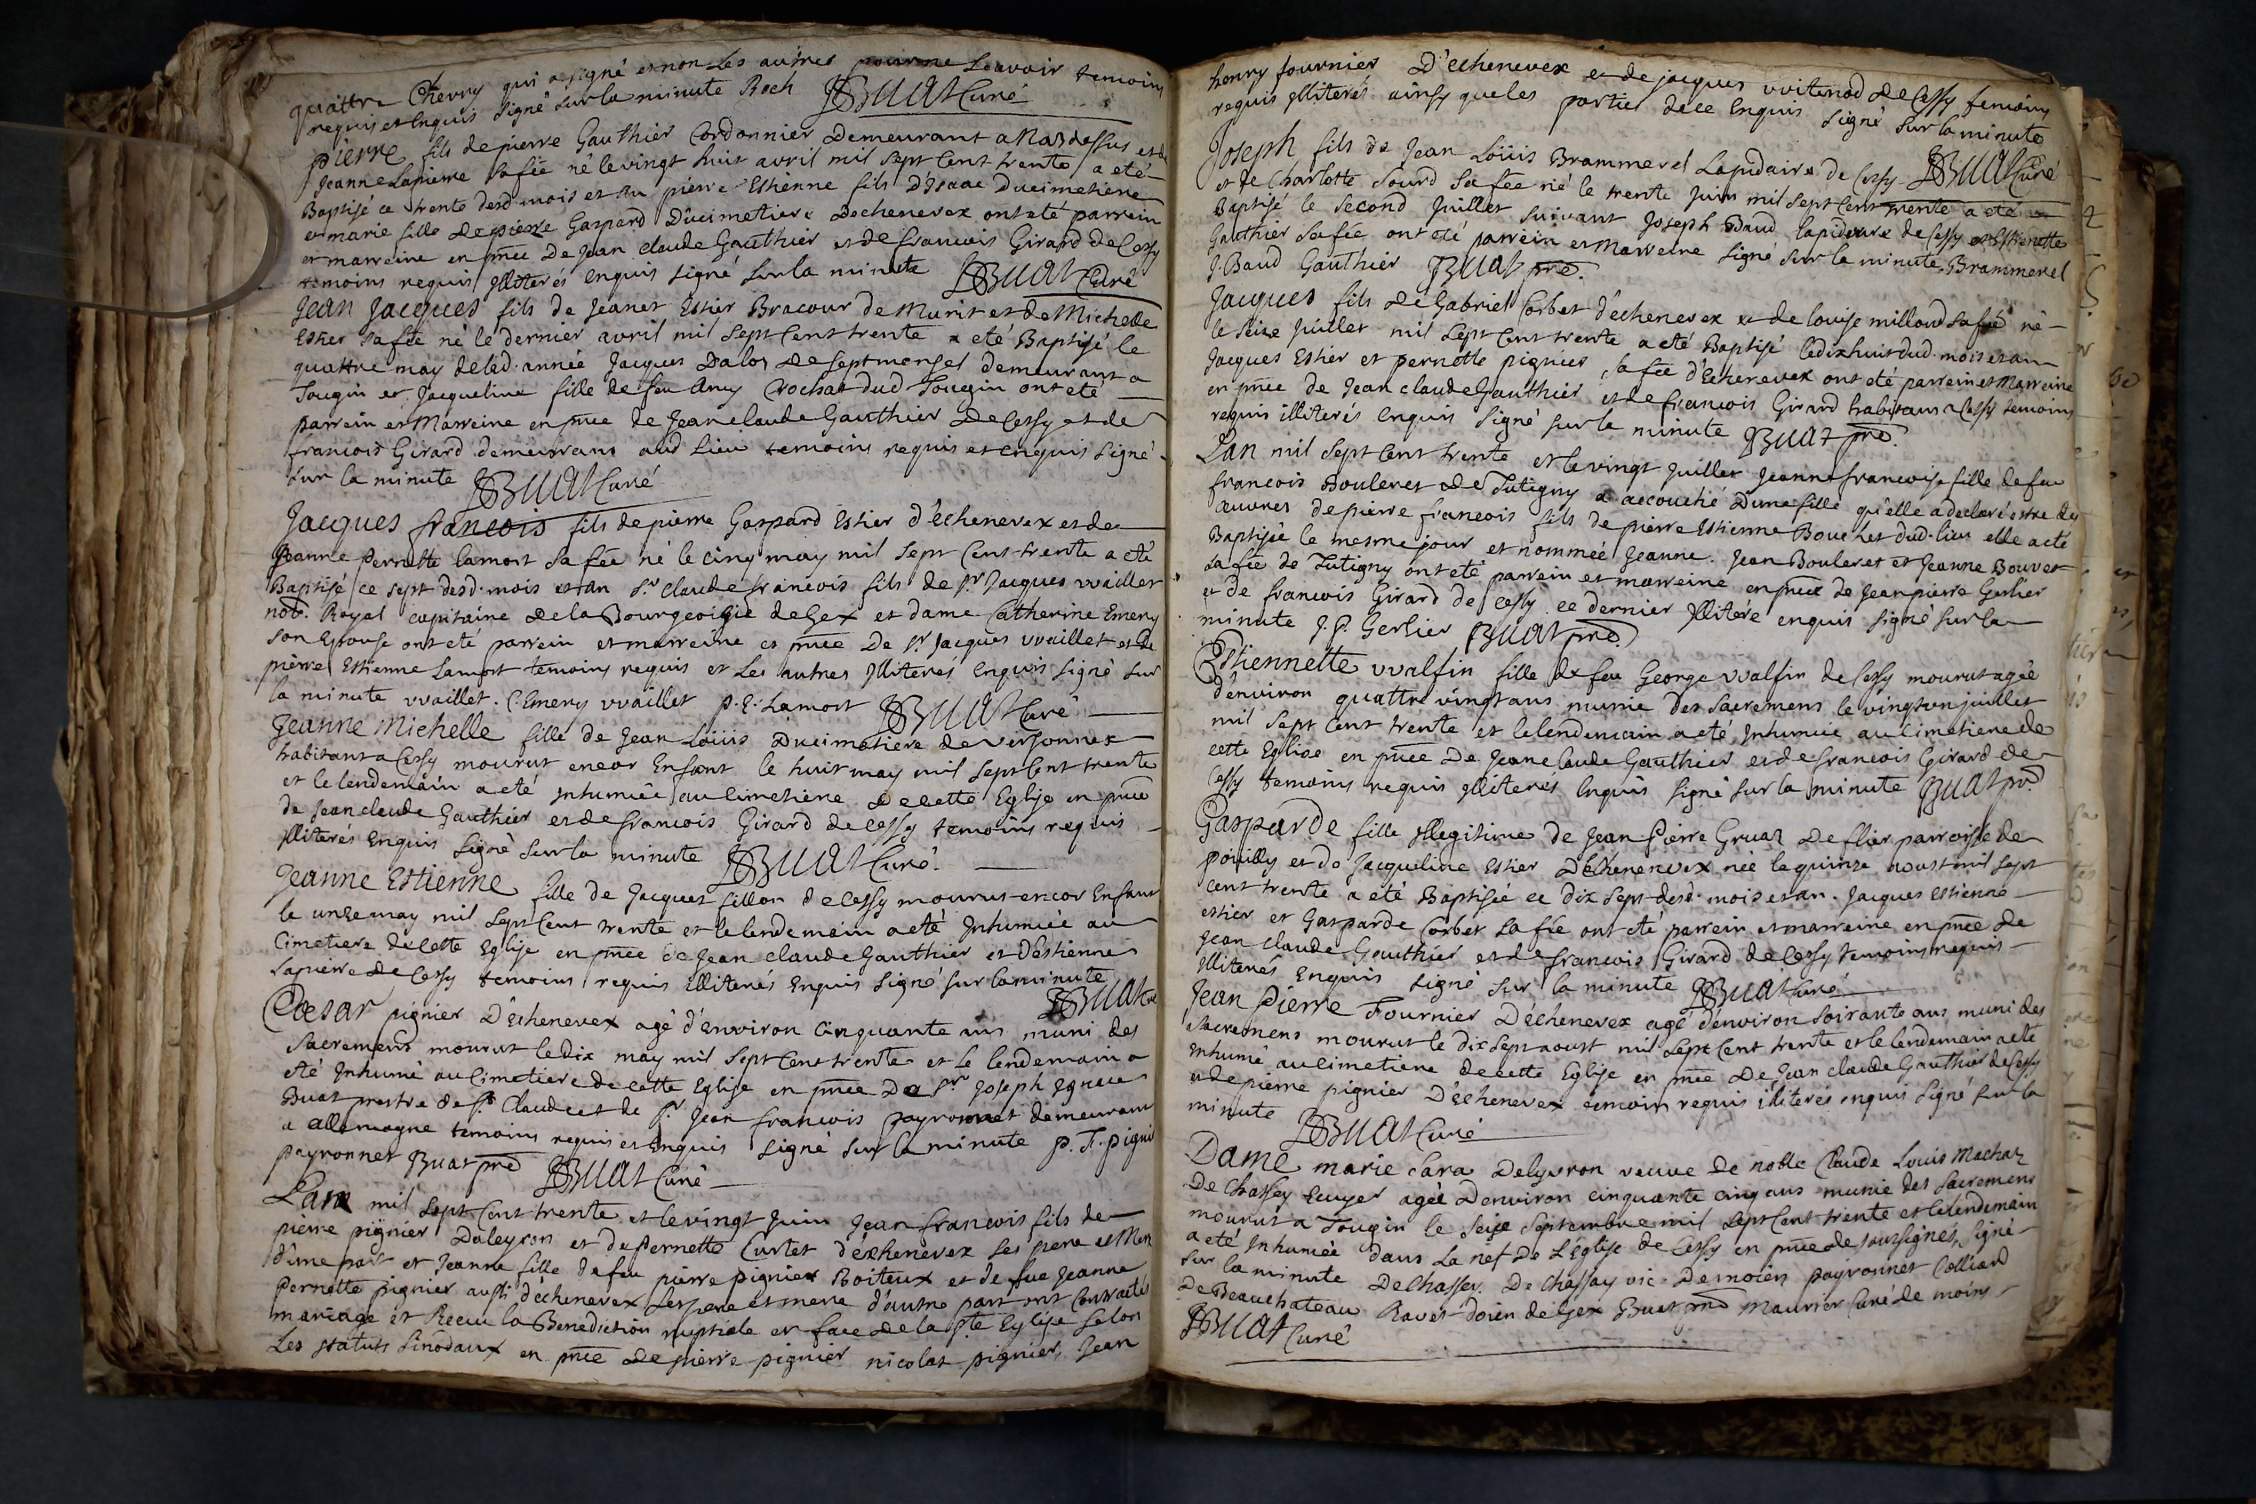 quattre Chevry qui a signé et non Les autres pour ne scavoir temoins
requis et Enquis signé sur la minute Roch JBBuat Curé
pierre fils de pierre Gauthier Cordonnier Demeurant a Naz dessus et de
Jeanne Lapierre sa fẽe né le vingt huit avril mil sept Cent trente a eté
Baptisé ce trente desd. mois et an pierre Estienne fils D'Isaac Ducimetiere
et marie fille de pierre Gaspard Ducimetiere Dechenevex ont eté parrein
et marreine en pñce De Jean claude Gauthier et de francois Girard de Cessy
temoins requis Illiterés enquis signé sur la minute JBBuat Curé
Jean Jacques fils de Jeanet Estier Bracour de Murit et de Michelle
Estier sa fẽe né le dernier avril mil sept Cent trente a eté Baptisé le
quattre may de lad. année Jacques Daloz de septmonsel demeurant a
Tougin et Jacqueline fille de feu Amy Crochat dud. Tougin ont eté
parrein et Marreine en pñce de Jean claude Gauthier de Cessy et de
francois Girard demeurans aud Lieu temoins requis et enquis signé
sur la minute JBBuat Curé
Jacques francois fils de pierre Gaspard Estier d'Echenevex et de
Jeanne Pernette lamort sa fẽe né le cinq may mil sept Cent trente a eté
Baptisé ce sept desd. mois et an Sr. Claude francois fils de Sr. Jacques vvaillet
not. Royal capitaine de la Bourgeoigie de Gex et dame Catherine Emery
son Epouse ont eté parrein et marreine es pñce De Sr. Jacques vvaillet et de
pierre Estienne Lamort temoins requis et Les autres Illiterés enquis signé sur
la minute vvaillet. C. Emery vvaillet P. E. Lamort JBBuat Curé
Jeanne Michelle fille de Jean Loüis Ducimetiere de versonnex
habitant a Cessy mourut encor Enfant le huit may mil sept Cent trente
et le lendemain a eté Inhumée au Cimetiere de cette Eglise en pñce
de Jean claude Gauthier et de francois Girard de Cessy temoins requis
Illiterés Enquis signé sur la minute JBBuat Curé.
Jeanne Estienne fille de Jacques fillon de Cessy mourut encor Enfant
le unze may mil sept Cent trente et le lendemain a eté Inhumée au
Cimetiere de cette Eglise en pñce de Jean claude Gauthier et d'Estienne
Lapierre de Cessy temoins requis Illiterés Enquis signé sur la minute
JBBuat Cu
Cæsar pignier D'Echenevex agé d'environ Cinquante ans muni des
Sacremens mourut le dix may mil sept Cent trente et le lendemain a
eté Inhumé au Cimetiere de cette Eglise en pñce De Sr. Joseph Ignace
Buat prestre de St. Claude et de Sr. Jean francois payronnet demeurant
a allemagne temoins requis et Enquis signé sur la minute P. F. pigni
payronnet Buat pre JBBuat Curé
L'an mil sept Cent trente et le vingt Juin Jean francois fils de
pierre pignier Daleyson et de Pernette Curtet d'échenevex ses pere et Mere
d'une part et Jeanne fille de feu pierre pignier Boiteux et de fue Jeanne
Pernette pignier aussi d'échenevex ses pere et mere d'autre part ont Contracté
mariage et Receu la Benediction nuptiale en face de la Ste Eglise selon
Les statuts sinodaux en pñce de pierre pignier nicolas pignier, Jean
henry fournier D'Echenevex et de jacques vvitenod de Cessy temoins
requis Illiterés ainsy que les parties de ce Enquis signé sur la minute
JBBuat Curé
Joseph fils de Jean Loüis Brammerel Lapidaire de Cessy
et de Charlotte Sourd sa fẽe né le trente Juin mil sept Cent trente a eté
Baptisé le second Juillet suivant Joseph Baud lapidaire de Cessy et Estienette
Gauthier sa fẽe ont eté parrein et Marreine signé sur la minute. Brammerel
J. Baud Gauthier Buat pre.
Jacques fils de Gabriel Corbet d'échenevex et de louise milloud sa fẽe né
le seize Juillet mil sept Cent trente a eté Baptisé le dix huit dud. mois et an
Jacques Estier et pernette pignier, sa fẽe d'Echenevex ont eté parrein et Marreine
en pñce de Jean claude Gauthier et de francois Girard habitans a Cessy temoins
requis illiterés enquis signé sur la minute Buat pre.
L'an mil sept Cent trente et le vingt Juillet Jeanne francoise fille de feu
francois Bouleret de Tutigny a accouché D'une fille qu'elle a declaré estre des
œuvres de pierre francois fils de pierre Estienne Bouchet dud. lieu elle a eté
Baptisée le mesme jour et nommée Jeanne. Jean Bouleret et Jeanne Bouvet
sa fẽe de Tutigny ont eté parrein et marreine en pñce de Jean pierre Gerlier
et de francois Girard de Cessy ce dernier Illiteré enquis signé sur la
minute J. P. Gerlier Buat pre
Estiennette vvalfin fille de feu George vvalfin de Cessy mourut agée
d'environ quattre vingt ans munie des Sacremens le vingt un juillet
mil sept Cent trente et le lendemain a eté Inhumée au Cimetiere de
cette Eglise en pñce De Jean claude Gauthier et de francois Girard de
Cessy temoins requis Illiterés Enquis signé sur la minute Buat pre
Gasparde fille Illegitime de Jean Pierre Gruaz de flier parroisse de
poüilly et de Jacqueline Estier D'échenevex née le quinze aoust mil sept
cent trente a eté Baptisée ce dix sept desd. mois et an. Jacques Estienne
estier et Gasparde Corbet sa fẽe ont eté parrein et marreine en pñce de
Jean claude Gauthier et de francois Girard de Cessy temoins requis
Illiterés Enquis signé sur la minute JBBuat Curé
Jean Pierre Fournier D'échenevex agé d'environ soixante ans muni des
Sacremens mourut le dix sept aoust mil sept Cent trente et le lendemain a eté
Inhumé au cimetiere de cette Eglise en pñce De Jean claude Gauthier de Cessy
et de pierre pignier D'échenevex temoins requis illiterés enquis signé sur la
minute JBBuat Curé
Dame marie Sara Deleyvron veuve de noble Claude Louis Machaz
De Chassey Ecuyer agée D'environ cinquante cinq ans munie des Sacremens
mourut a Tougin le seize Septembre mil sept Cent trente et le lendemain
a eté Inhumée dans La nef De L'Eglise de Cessy en pñce de soussignés, signé
sur la minute De Chassey. De Chassay vic. payronnet Colliard
De Beauchateau Ravet doien de Gex Buat pre Maurier Curé de moins
JBBuat Curé